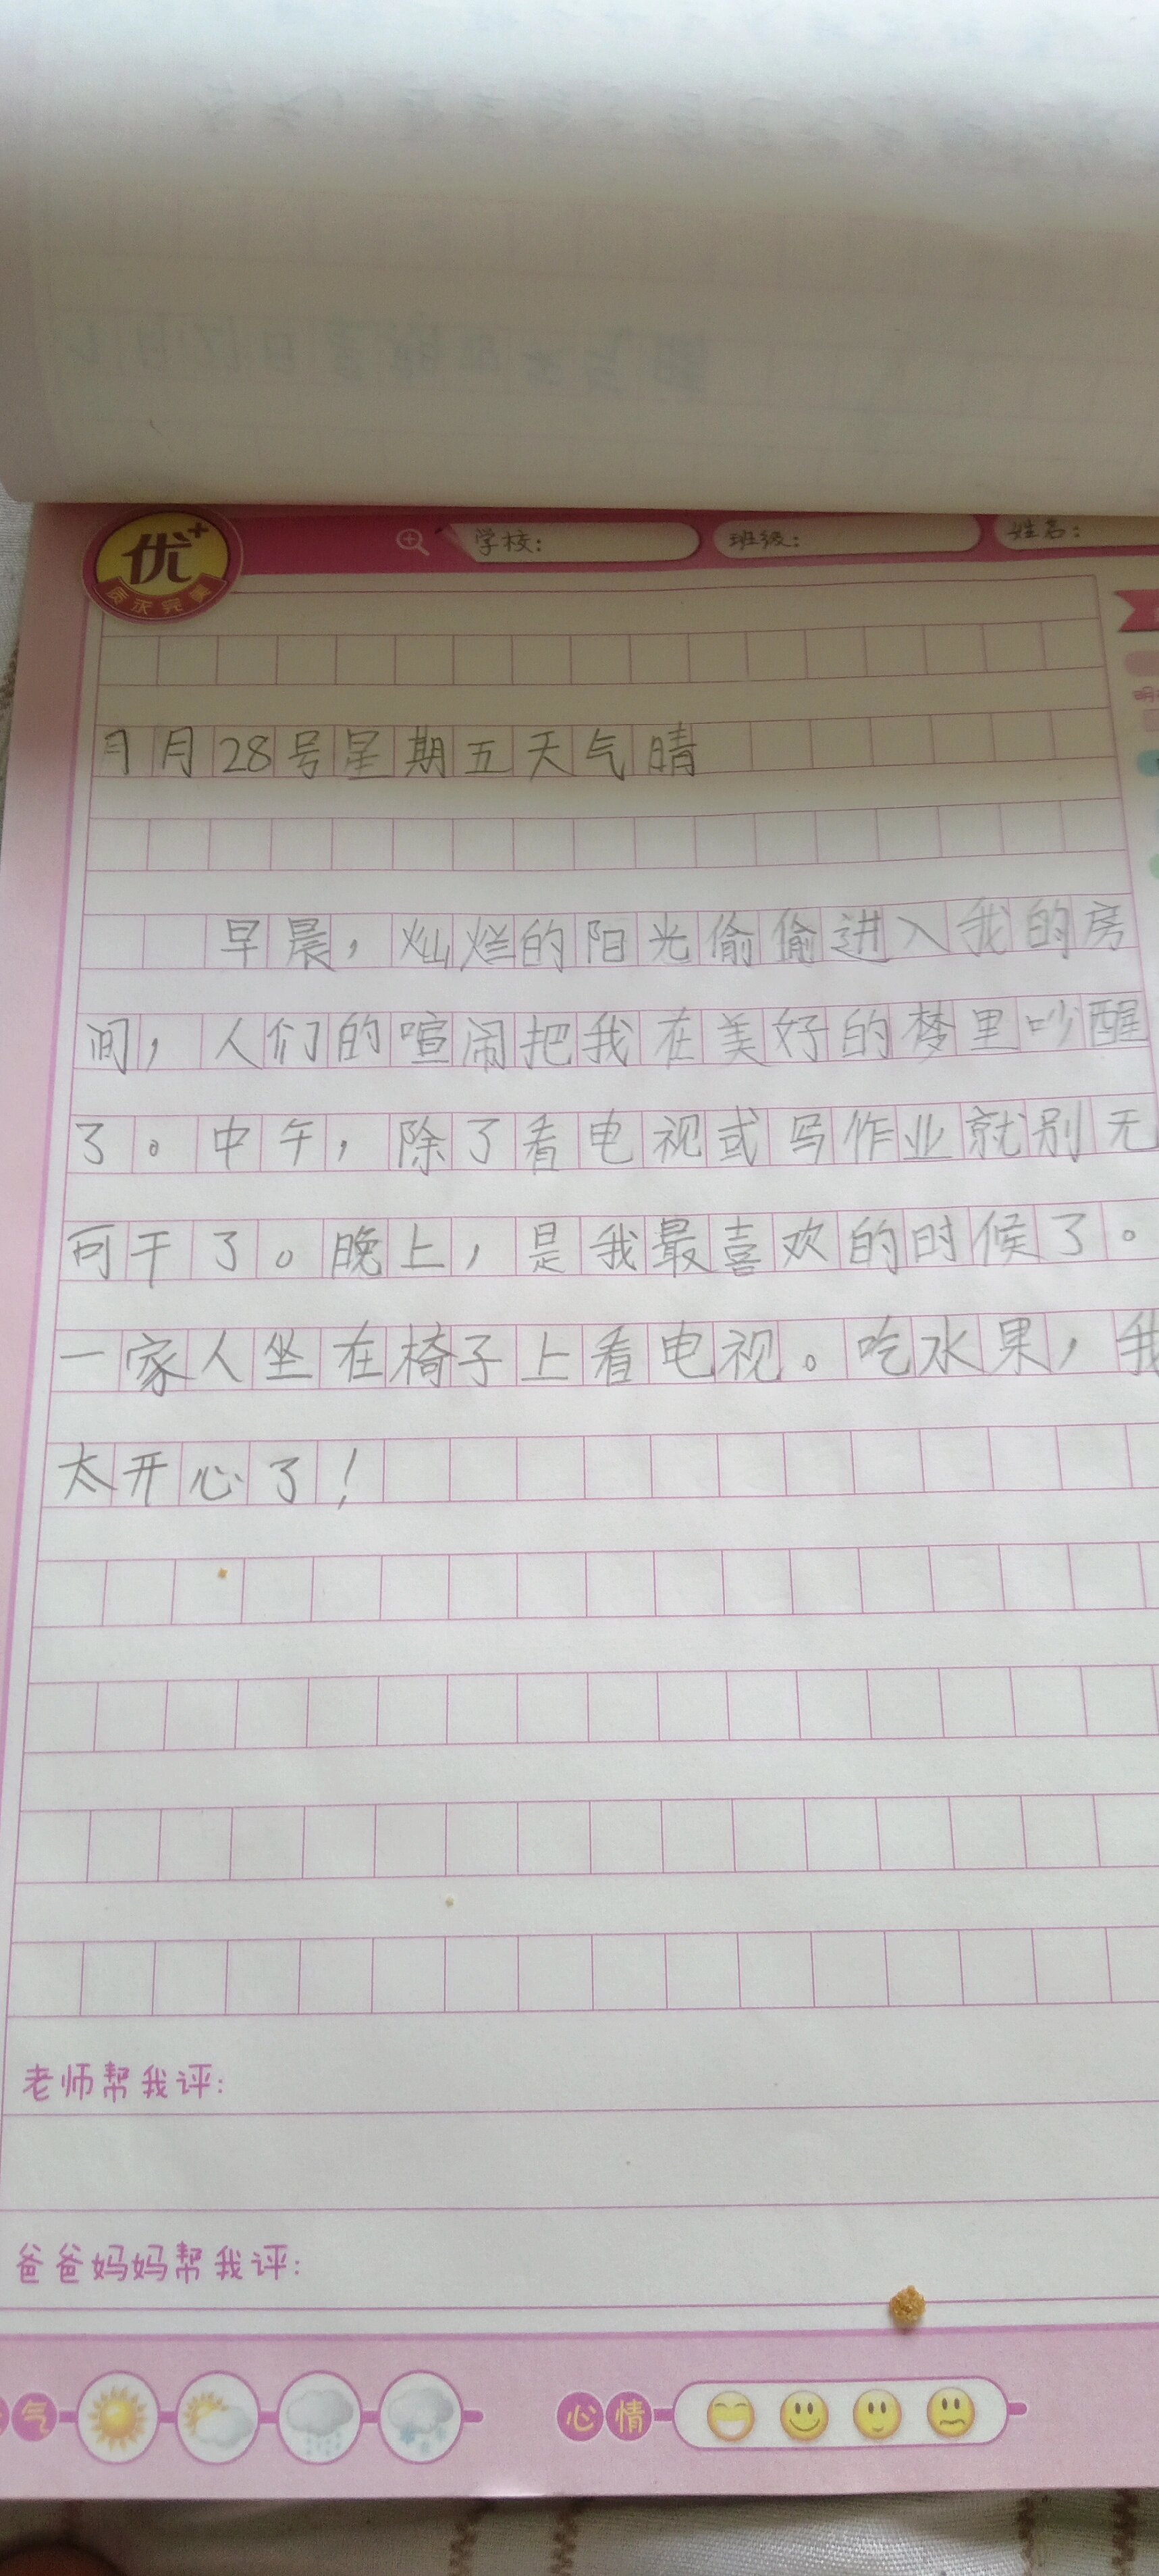 优+
质永完美
学校：
班级：
姓名：
月28号星期五天气晴
早晨，灿烂的阳光偷偷进入我的房
间，人们的喧闹把我在美好的梦里吵醒
了。中午，除了看电视或写作业就别无
可干了。晚上，是我最喜欢的时候了。
一家人坐在椅子上看电视。吃水果，我
太开心了！
老师帮我评：
爸爸妈妈帮我评：
气
心情